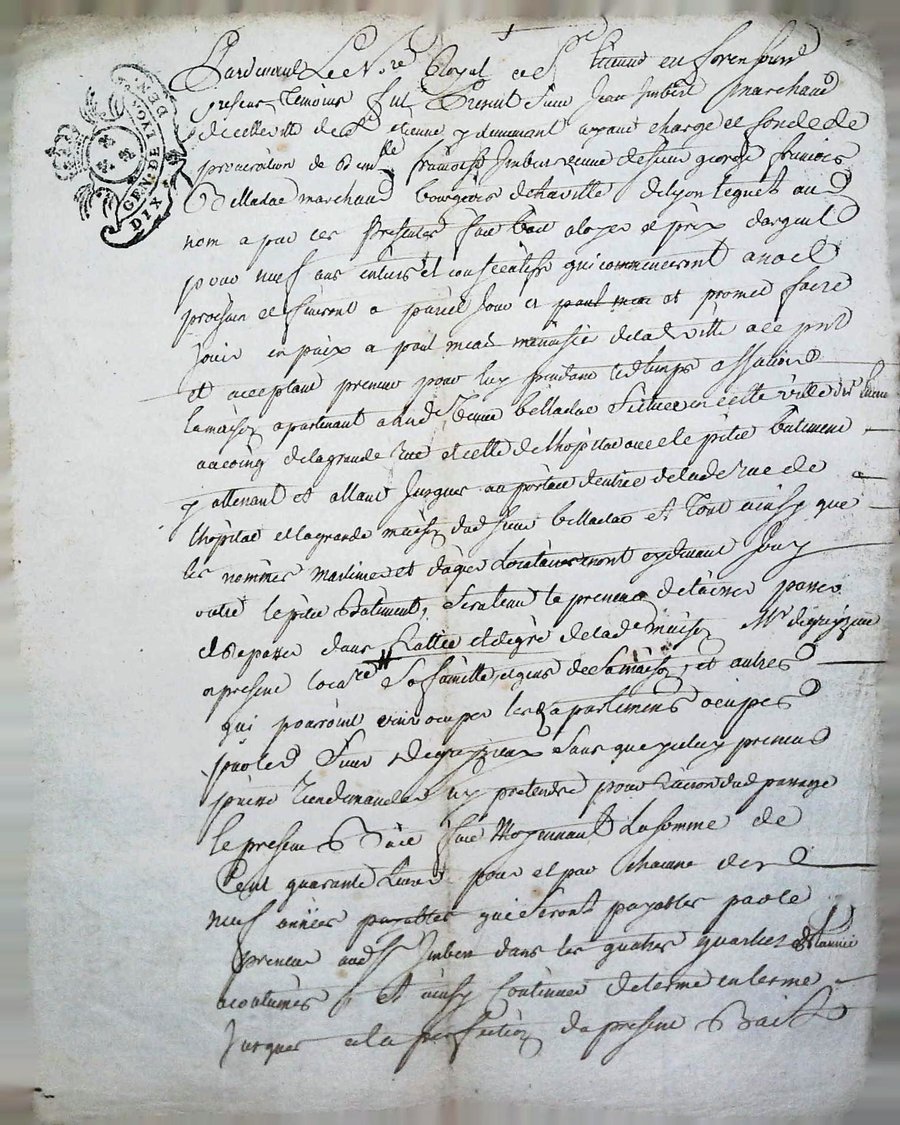 GEN. DE LYON
DIX DEN.
Pardevant Le Nre Royal a St Etienne en forez sousné
presens Temoins fut Present Sieur Jean Imbert Marchand
de cette ville de St etienne y demeurant ayant charge et fondé de
procuration de Demlle françoise Imbert veuve de sieur george francois
Belladac marchand bourgeois de la ville de lyon lequel aud
nom a par ces Presentes fait bail a loyer et prix d'argent
pour neuf ans entiers et consecutifs qui commenceront a noel
prochain et finiront a pareil jour et promet faire
jouir en paix a paul meal menuisier de lad ville a ce pnt
et acceptant preneur pour luy pendant led temps
la maison apartenant a lad veuve belladac Situee en cette ville de St Etienne
au coing de la grande rue et celle de l'hopital avec le petit bâtiment
y attenant et allant Jusques au portail d'entrée de lad rue de
l'hôpital et la grande maison dud sieur belladac et Tout ainsy que
les nommés et Locataires en ont cy devant Jouy
outre le petit Batiment, Sera tenu le preneur de laisser passer
et repasser dans l'allée et degré de lad maison Mr
a present locare Sa famille, et gens de Sa maison, et autres
qui pouront venir occuper les apartemens occupés
par led Sieur Sans que yceluy preneur
puisse Rien demander ny pretendre pour raison dud passage
le present Bail fait Moyennant La somme de
Cent quarante Livres pour et par chacune desd
neuf années payables qui Seront payables par le
preneur aud Sr Imbert dans les quatres quartiers de l'année
acoutumés, et ainsy Continuer de terme en terme
Jusques a la perfection du present Bail